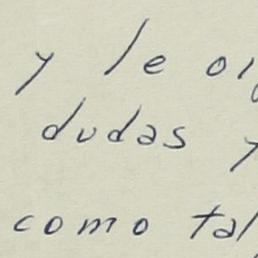 y le
dudas y
como tal